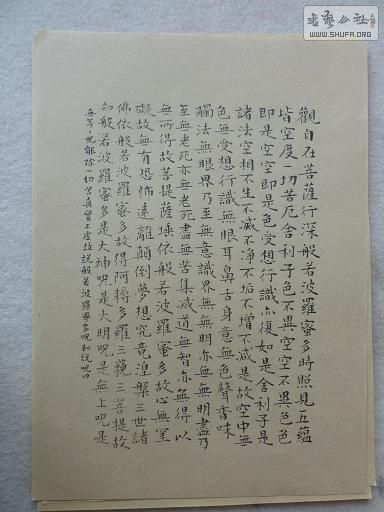 觀自在菩薩行深般若波羅蜜多時照見五蘊
皆空度一切苦厄舍利子色不異空空不異色色
即是空空即是色受想行識亦復如是舍利子是
諸法空相不生不滅不淨不垢不增不減是故空中無
色無受想行識無眼耳鼻舌身意無色聲香味
觸法無眼界乃至無意識界無無明亦無無明盡乃
至無老死亦無老死盡無苦集滅道無智亦無得以
無所得故菩提薩埵依般若波羅蜜多故心無罣
礙故無有恐怖遠離顛倒夢想究竟涅槃三世諸
佛依般若波羅蜜多故得阿耨多羅三藐三菩提故
知般若波羅蜜多是大神呪是大明呪是無上呪是
無等々呪能除一切苦真實不虛故說般若波羅蜜多呪即說呪曰
书艺公社
WWW.SHUFA.ORG